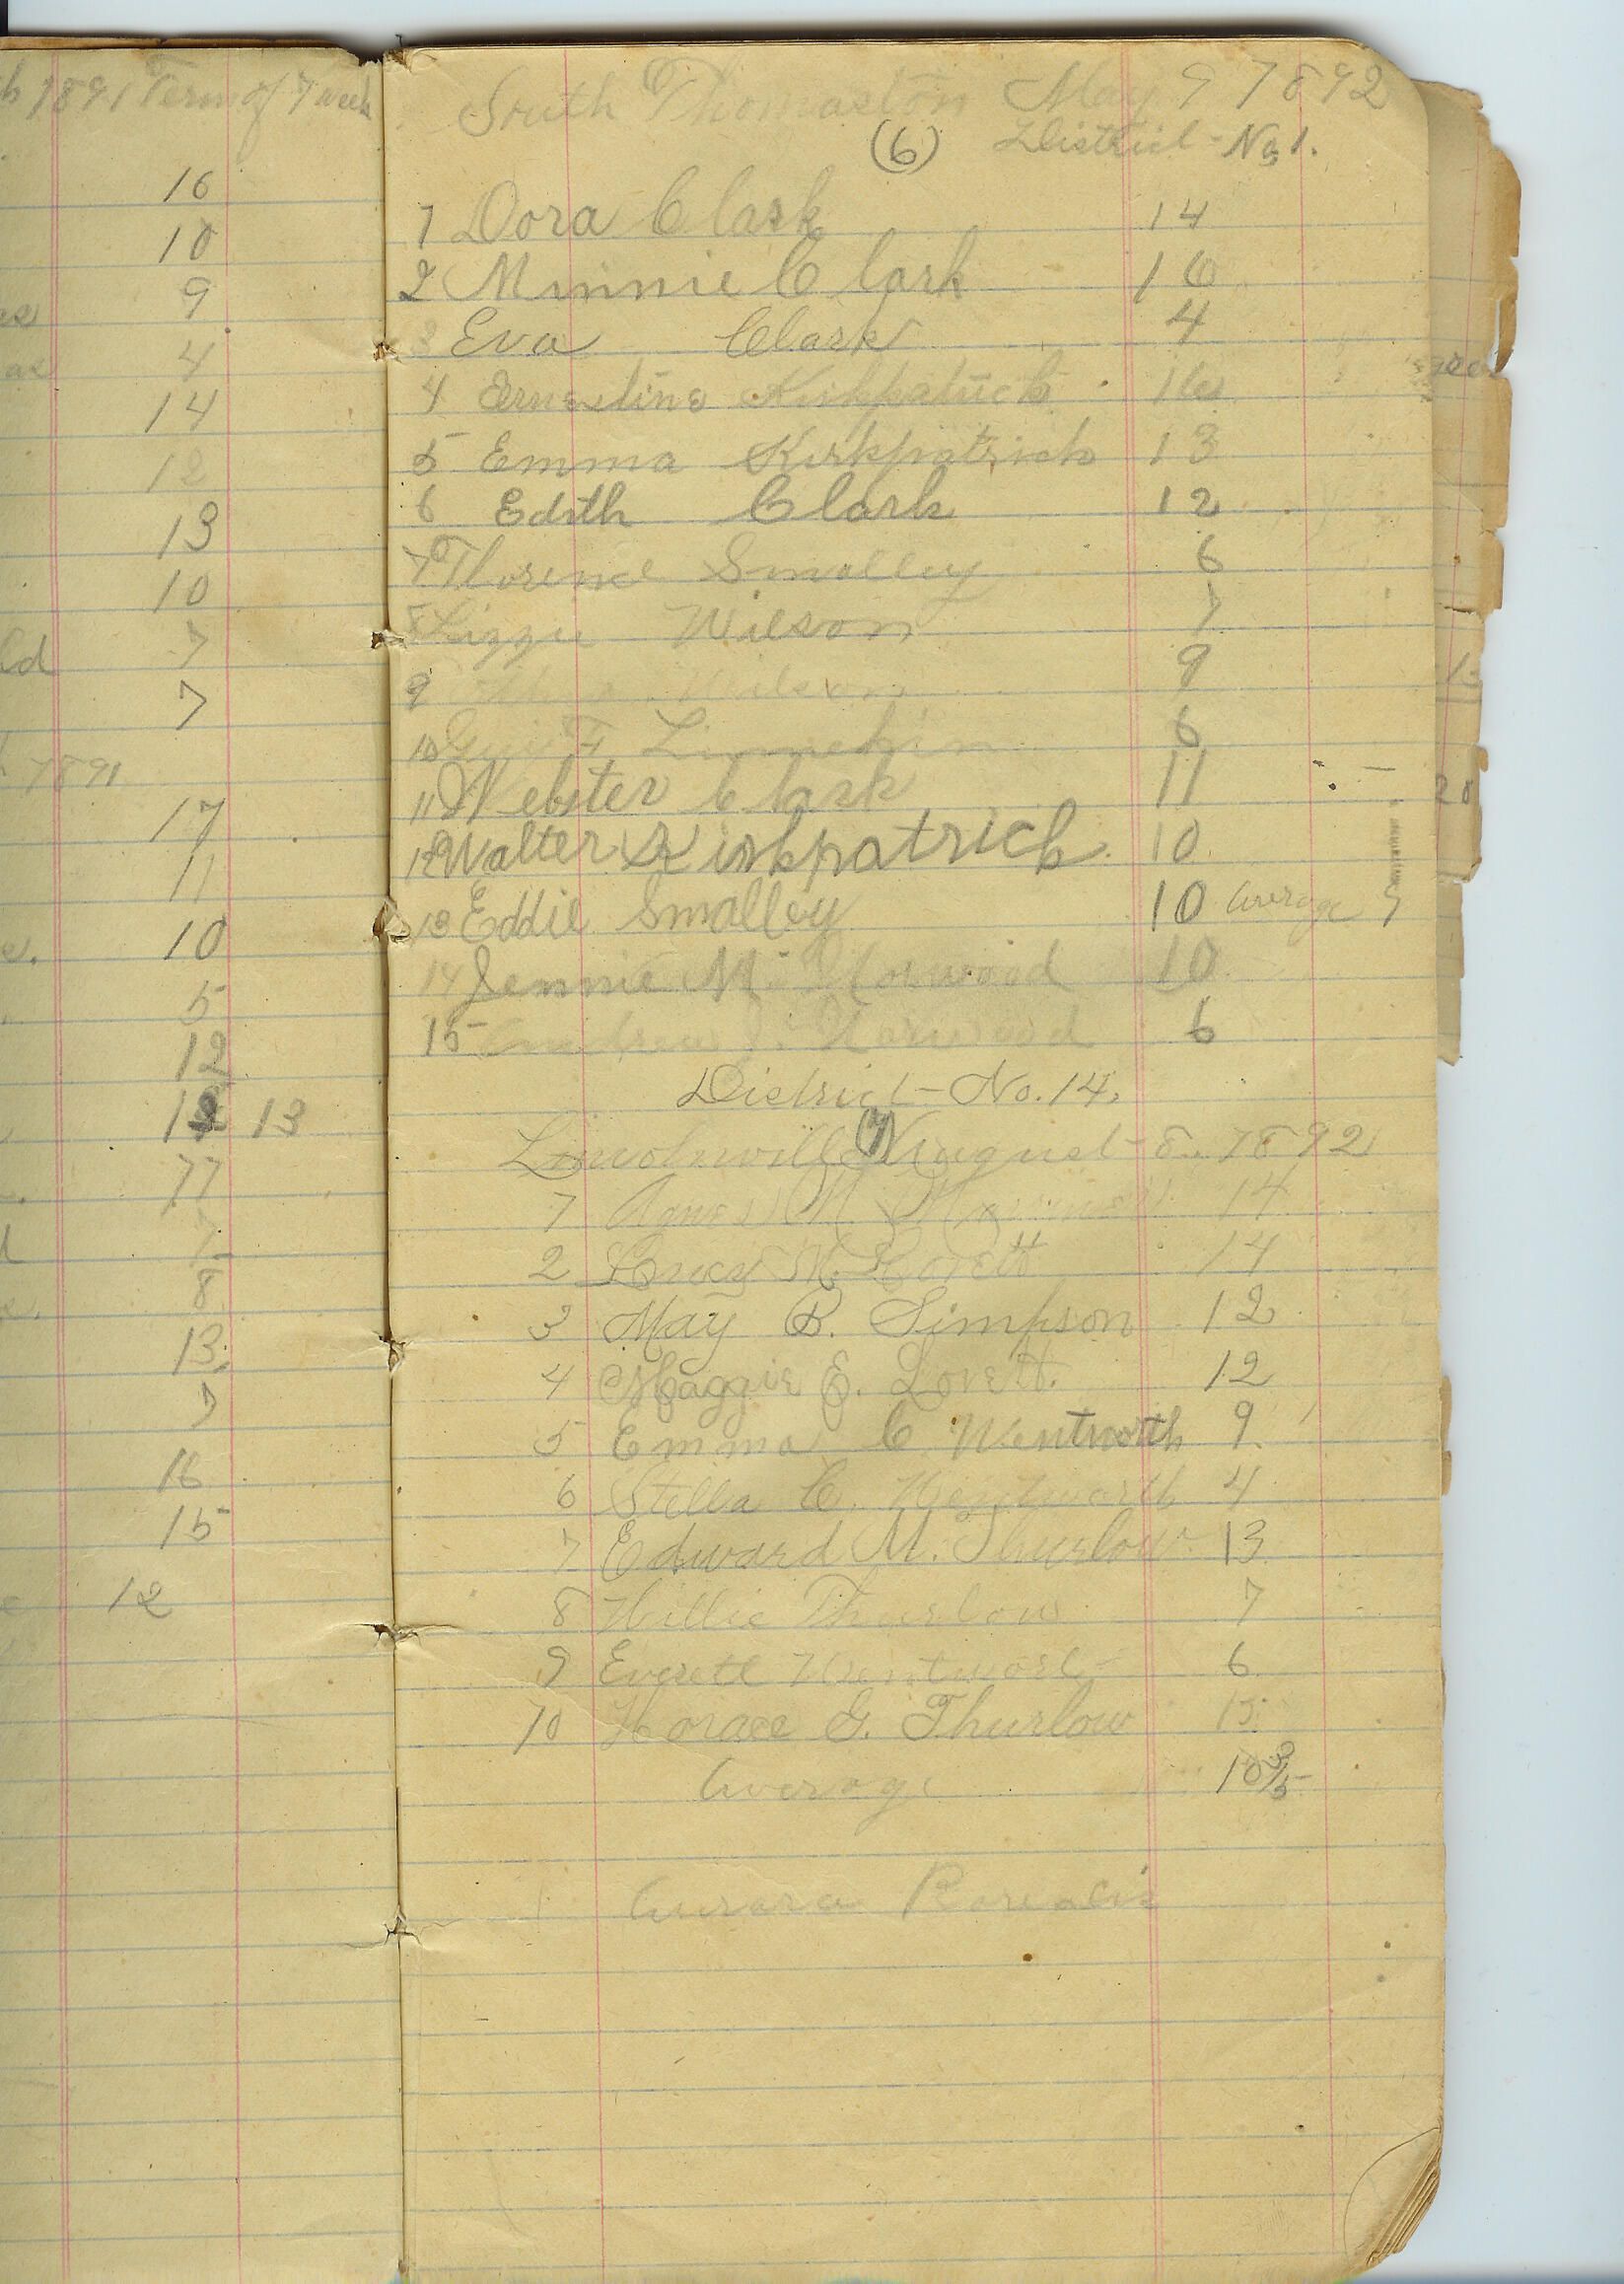 h 1891 Term of 7 week
16
10
9
es
4
as
14
12
13
10
7
ld
7
1891
17
11
10
5
12
13
11
8
13
7
16
15
12
South Thomaston May 9 1892
(6) District No 1.
1 Dora Clark 14
2 Minnie Clark 16
3 Eva Clark 4
4 Ernestine Kirkpatrick 16
5 Emma Kirkpatrick 13
6 Edith Clark 12
7 Florence Smalley 6
8 Lizzie Wilson 7
9 Wilson 9
10 Guy F Linnekin 6
11 Webster Clark 11
12 Walter Kirkpatrick. 10
13 Eddie Smalley 10 average
14 Jennie M. Norwood 10
15 Andrew J. Norwood 6
District No. 14.
Lincolnville (7) August 8. 1892
1 Agnes M. 14
2 Lucy M. Lovett 14
3 May B. Simpson 12
4 Maggie E. Lovett. 12
5 Emma C Wentworth 9
6 Stella C. Wentworth 4
7 Edward M. Thurlow 13
8 Willie Thurlow 7
9 Everett Wentworth 6
10 Horace G. Thurlow 15
Average 10 3/5
Aurora Borealis